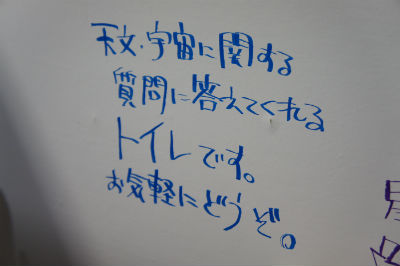 天文・宇宙に関する
質問に答えてくれる
トイレです。
お気軽にどうぞ。